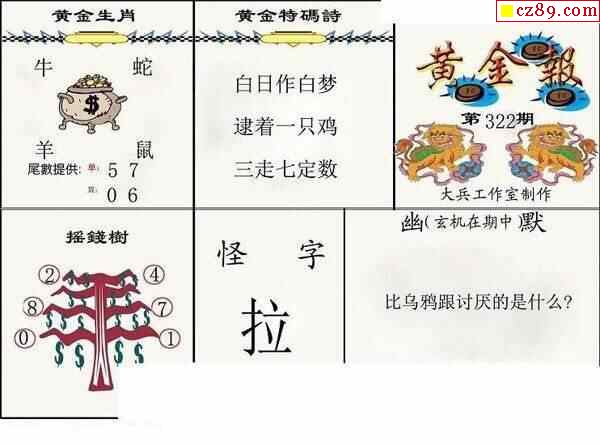 cz89.com
黄金生肖
牛 蛇
羊 鼠
尾數提供: 单: 5 7
双: 0 6
黄金特碼詩
白日作白梦
逮着一只鸡
三走七定数
黄金報
第322期
大兵工作室制作
摇錢樹
② ④
⑧ ⑦
⓪ ①
怪 字
拉
幽(玄机在期中)默
比乌鸦跟讨厌的是什么?